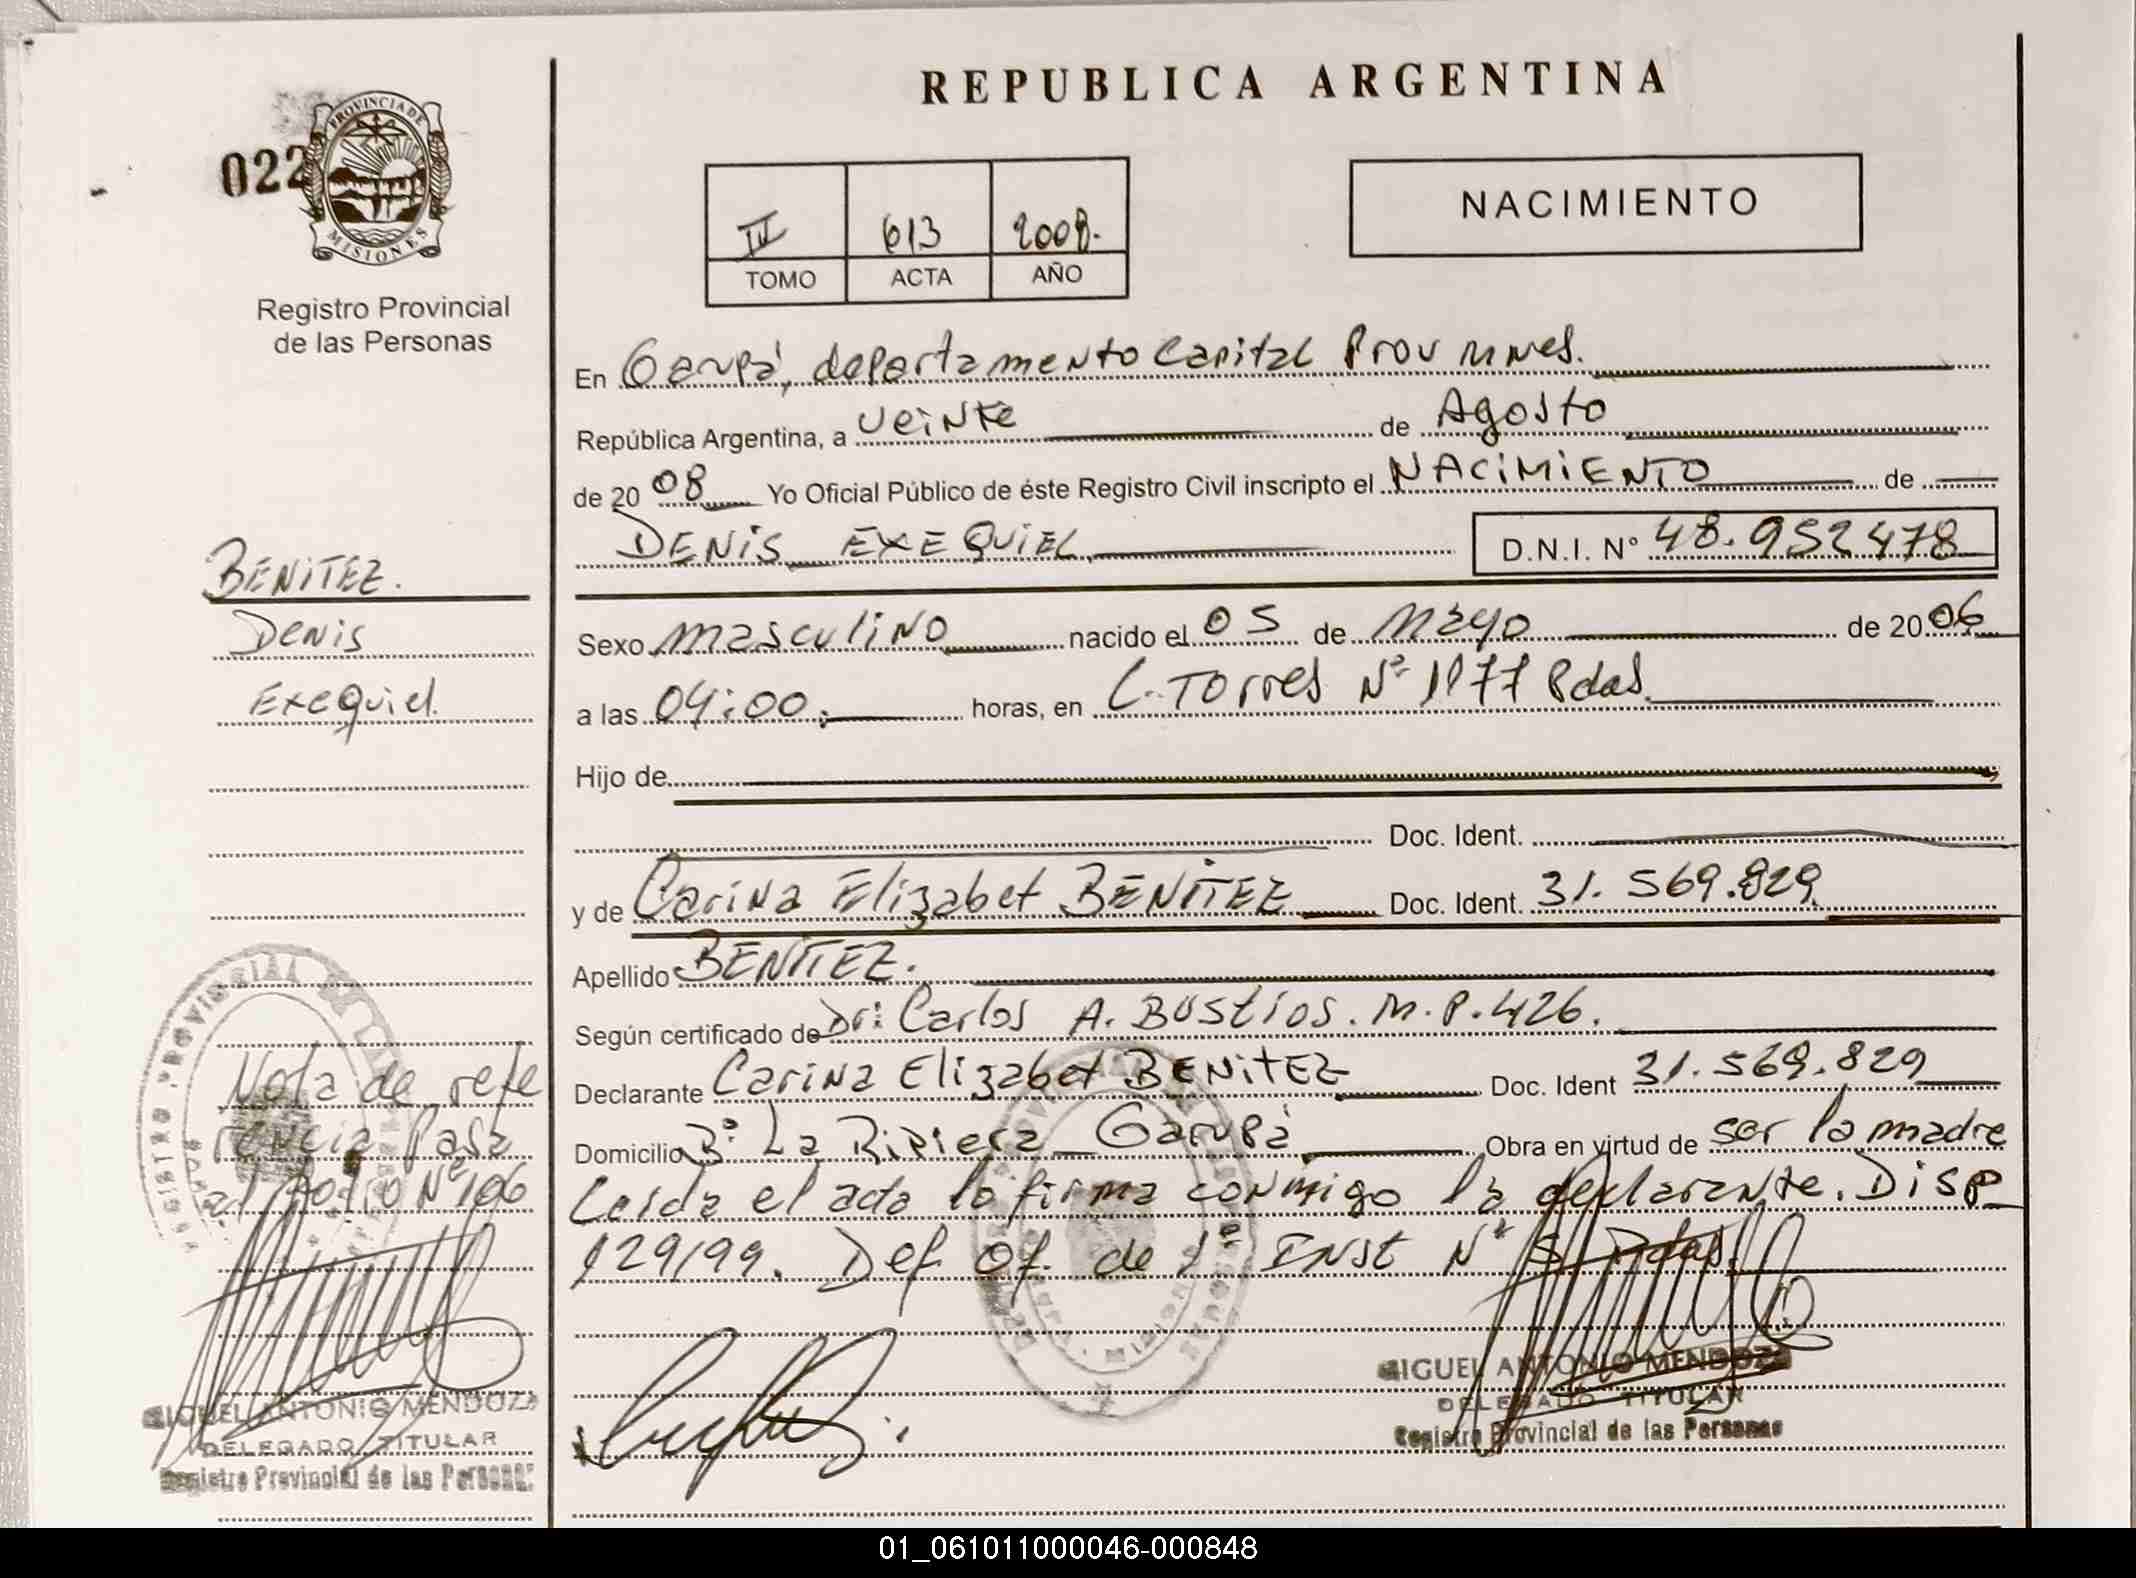 REPUBLICA ARGENTINA
022
PROVINCIA DE
MISIONES
Registro Provincial
de las Personas
NACIMIENTO
IV 613 2008.
TOMO ACTA AÑO
En Garupá, departamento Capital Prov Mnes.
República Argentina, a veinte de Agosto
de 2008 Yo Oficial Público de éste Registro Civil inscripto el NACIMIENTO de
DENIS EXEQUIEL D.N.I. N° 48.952478
BENITEZ.
Denis
Exequiel.
Sexo masculino nacido el 05 de Mayo de 2006
a las 04:00 horas, en C. Torres Nº 1177 Pdas.
Hijo de
Doc. Ident.
y de Carina Elizabet BENITEZ Doc. Ident. 31.569.829
Apellido BENITEZ.
Según certificado de Dr: Carlos A. Bustios. M.P. 426.
Declarante Carina Elizabet BENITEZ Doc. Ident 31.569.829
Domicilio Bº La Riviera Garupá Obra en virtud de ser la madre
Leida el acta la firma conmigo la declarante. Disp
129/99. Def. Of. de 1º Inst Nº 5 Pdas.
Nota de refe
rencia Pasa
al Folio Nº 106
MIGUEL ANTONIO MENDOZA
DELEGADO TITULAR
Registro Provincial de las Personas
MIGUEL ANTONIO MENDOZA
DELEGADO TITULAR
Registro Provincial de las Personas
01_061011000046-000848